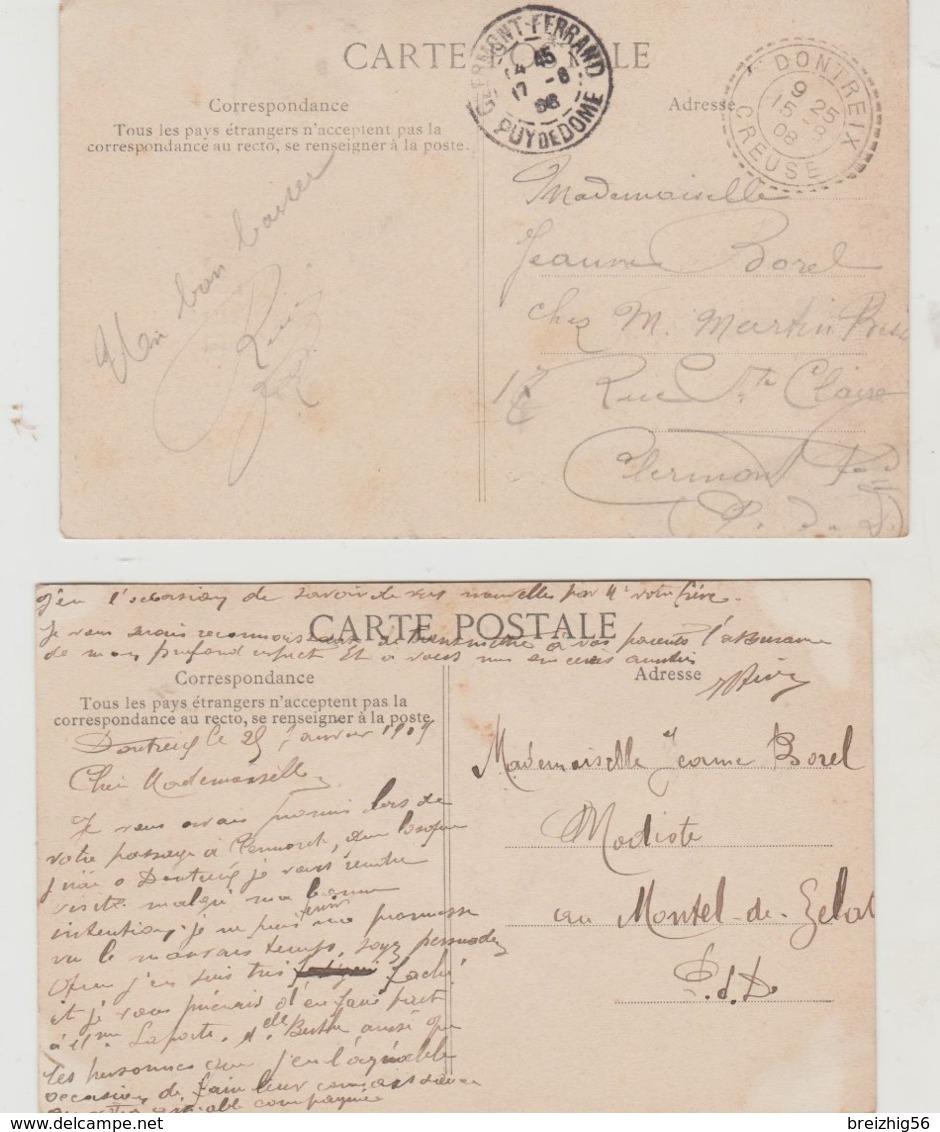 CARTE POSTALE
CLERMONT-FERRAND
17 - 8
PUY DE DOME
DONTREIX
9 25
15 - 8
08
CREUSE
Correspondance
Adresse
Tous les pays étrangers n'acceptent pas la
correspondance au recto, se renseigner à la poste.
Un bon baiser
Mademoiselle
Jeanne Borel
chez M. Martin
Rue Ste Claire
Clermont Fd
(P. d. D.)
J'eu l'occasion de savoir de vos nouvelles par Mr votre frère.
CARTE POSTALE
Je vous serais reconnaissant de transmettre à vos parents l'assurance
de mon profond respect Et à vous mes sincères amitiés
Correspondance
Adresse
Tous les pays étrangers n'acceptent pas la
correspondance au recto, se renseigner à la poste
Dontreix le 25 Janvier 1909
Chère Mademoiselle
Je vous avais promis lors de
votre passage à que lorsque
j'irai à Dontreix je vous rendre
visite malgré ma bonne
intention je ne puis tenir ma promesse
vu le mauvais temps, soyez persuadée
que j'en suis très fâché
et je vous prierais d'en faire part
à Mme Laporte, Melle Berthe aussi que
les personnes que j'eu l'agréable
occasion de faire leur connaissance
en votre aimable compagnie
Mademoiselle Jeanne Borel
Modiste
au Montel-de-Gelat
P.d.D
breizhig56